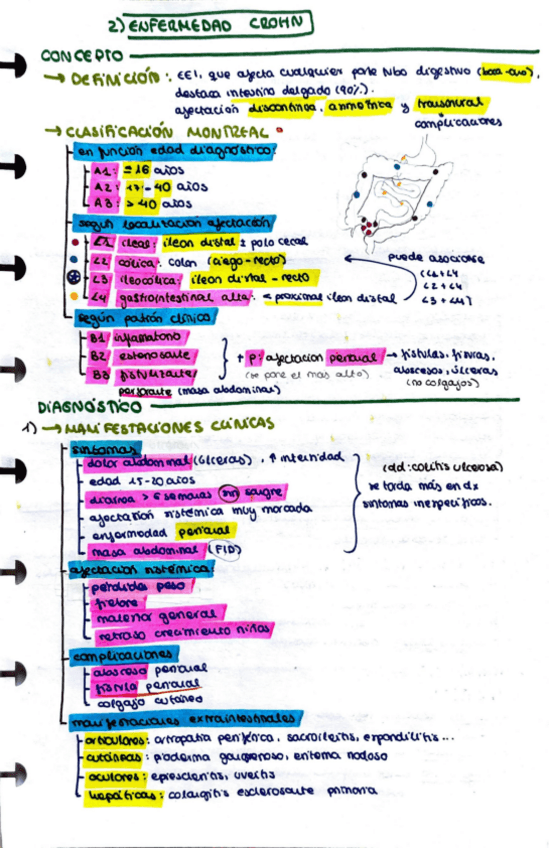 2) ENFERMEDAD CROHN
CONCEPTO
→ DEFINICIÓN: EEI, que afecta cualquier parte tubo digestivo (boca-ano),
destaca intestino delgado (90%).
afectación discontinua, asimétrica y transmural
complicaciones
→ CLASIFICACIÓN MONTREAL
en función edad diagnóstico:
A1: ≤ 16 años
A2: 17-40 años
A3: > 40 años
según localización afectación
L1 ileal: íleon distal ± polo cecal
L2 cólica: colon (ciego-recto)
L3 ileocólica: íleon distal - recto
L4 gastrointestinal alta: < proximal íleon distal
puede asociarse
L1+L4
L2+L4
L3+L4
según patrón clínico
B1 inflamatorio
B2 estenosante
B3 fistulizante
perforante (masa abdominal)
+ P: afectación perianal → fístulas, fisuras,
(se pone el más alto) abscesos, úlceras
(no colgajos)
DIAGNÓSTICO
1) → MANIFESTACIONES CLÍNICAS
síntomas
dolor abdominal (úlceras), ↑ intensidad
edad 15-20 años
diarrea > 6 semanas sin sangre
afectación sistémica muy marcada
enfermedad perianal
masa abdominal (FID)
(dd: colitis ulcerosa)
se tarda más en dx
síntomas inespecíficos.
afectación sistémica:
perdidas peso
fiebre
malestar general
retraso crecimiento niños
complicaciones
absceso perianal
fístula perianal
colgajo cutáneo
manifestaciones extraintestinales
articulares: artropatía periférica, sacroileítis, espondilitis...
cutáneas: pioderma gangrenoso, eritema nodoso
oculares: epiescleritis, uveítis
hepáticas: colangitis esclerosante primaria